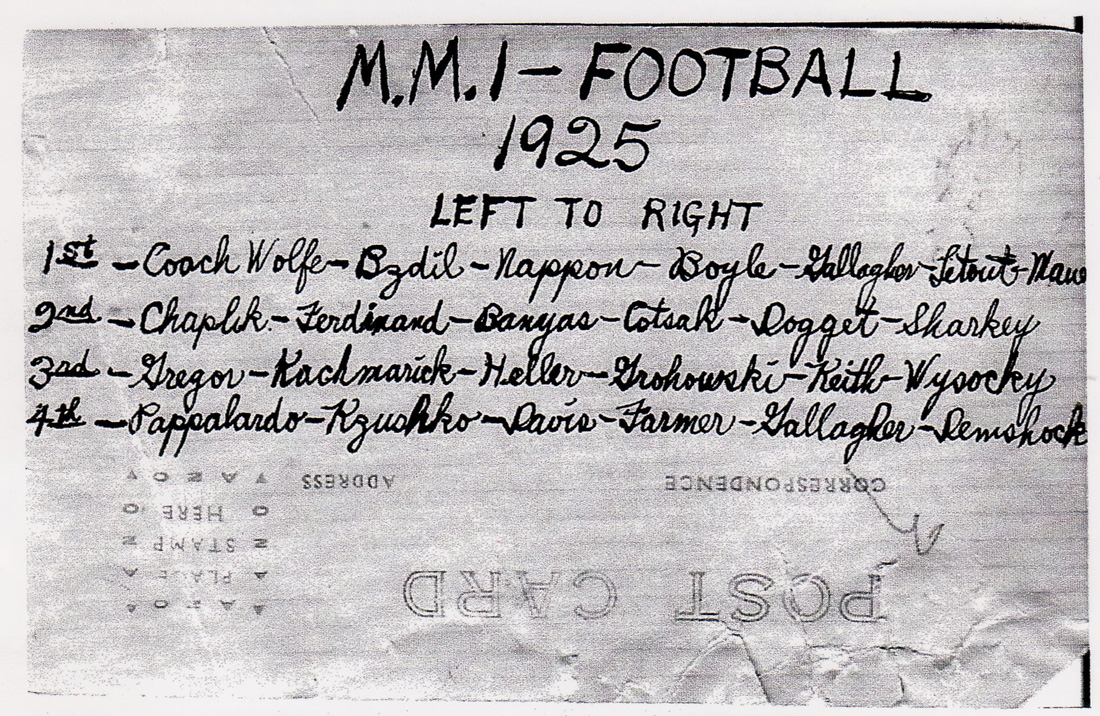 M.M.I - FOOTBALL
1925
LEFT TO RIGHT
1st - Coach Wolfe - Bzdil - Nappon - Boyle - Gallagher - Letout -
2nd - Chaplik - Ferdinand - Banyas - Cotsak - Dogget - Sharkey
3rd - Gregor - Kachmarick - Heller - Grohowski - Keith - Wysocky
4th - Pappalardo - Kzushko - Davis - Farmer - Gallagher - Demshock
CORRESPONDENCE ADDRESS
POST CARD
AZO
PLACE
STAMP
HERE
AZO